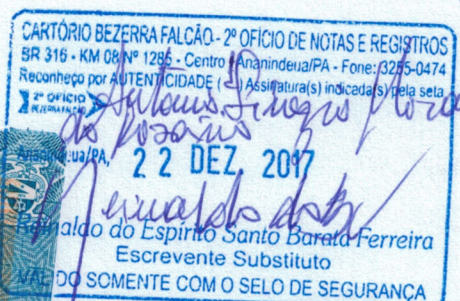 CARTÓRIO BEZERRA FALCÃO - 2º OFÍCIO DE NOTAS E REGISTROS
BR 316 - KM 08 Nº 1285 - Centro - Ananindeua/PA - Fone: 3255-0474
Reconheço por AUTENTICIDADE ( ) Assinatura(s) indicada(s) pela seta
2º OFÍCIO
BEZERRA FALCÃO
Antonio
do Rosário
Ananindeua/PA, 22 DEZ. 2017
Reinaldo do Espírito Santo Barata Ferreira
Escrevente Substituto
VÁLIDO SOMENTE COM O SELO DE SEGURANÇA